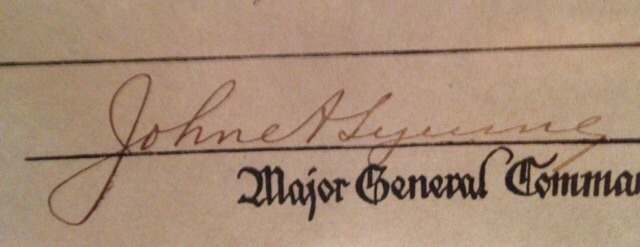 John A Lejeune
Major General Comma